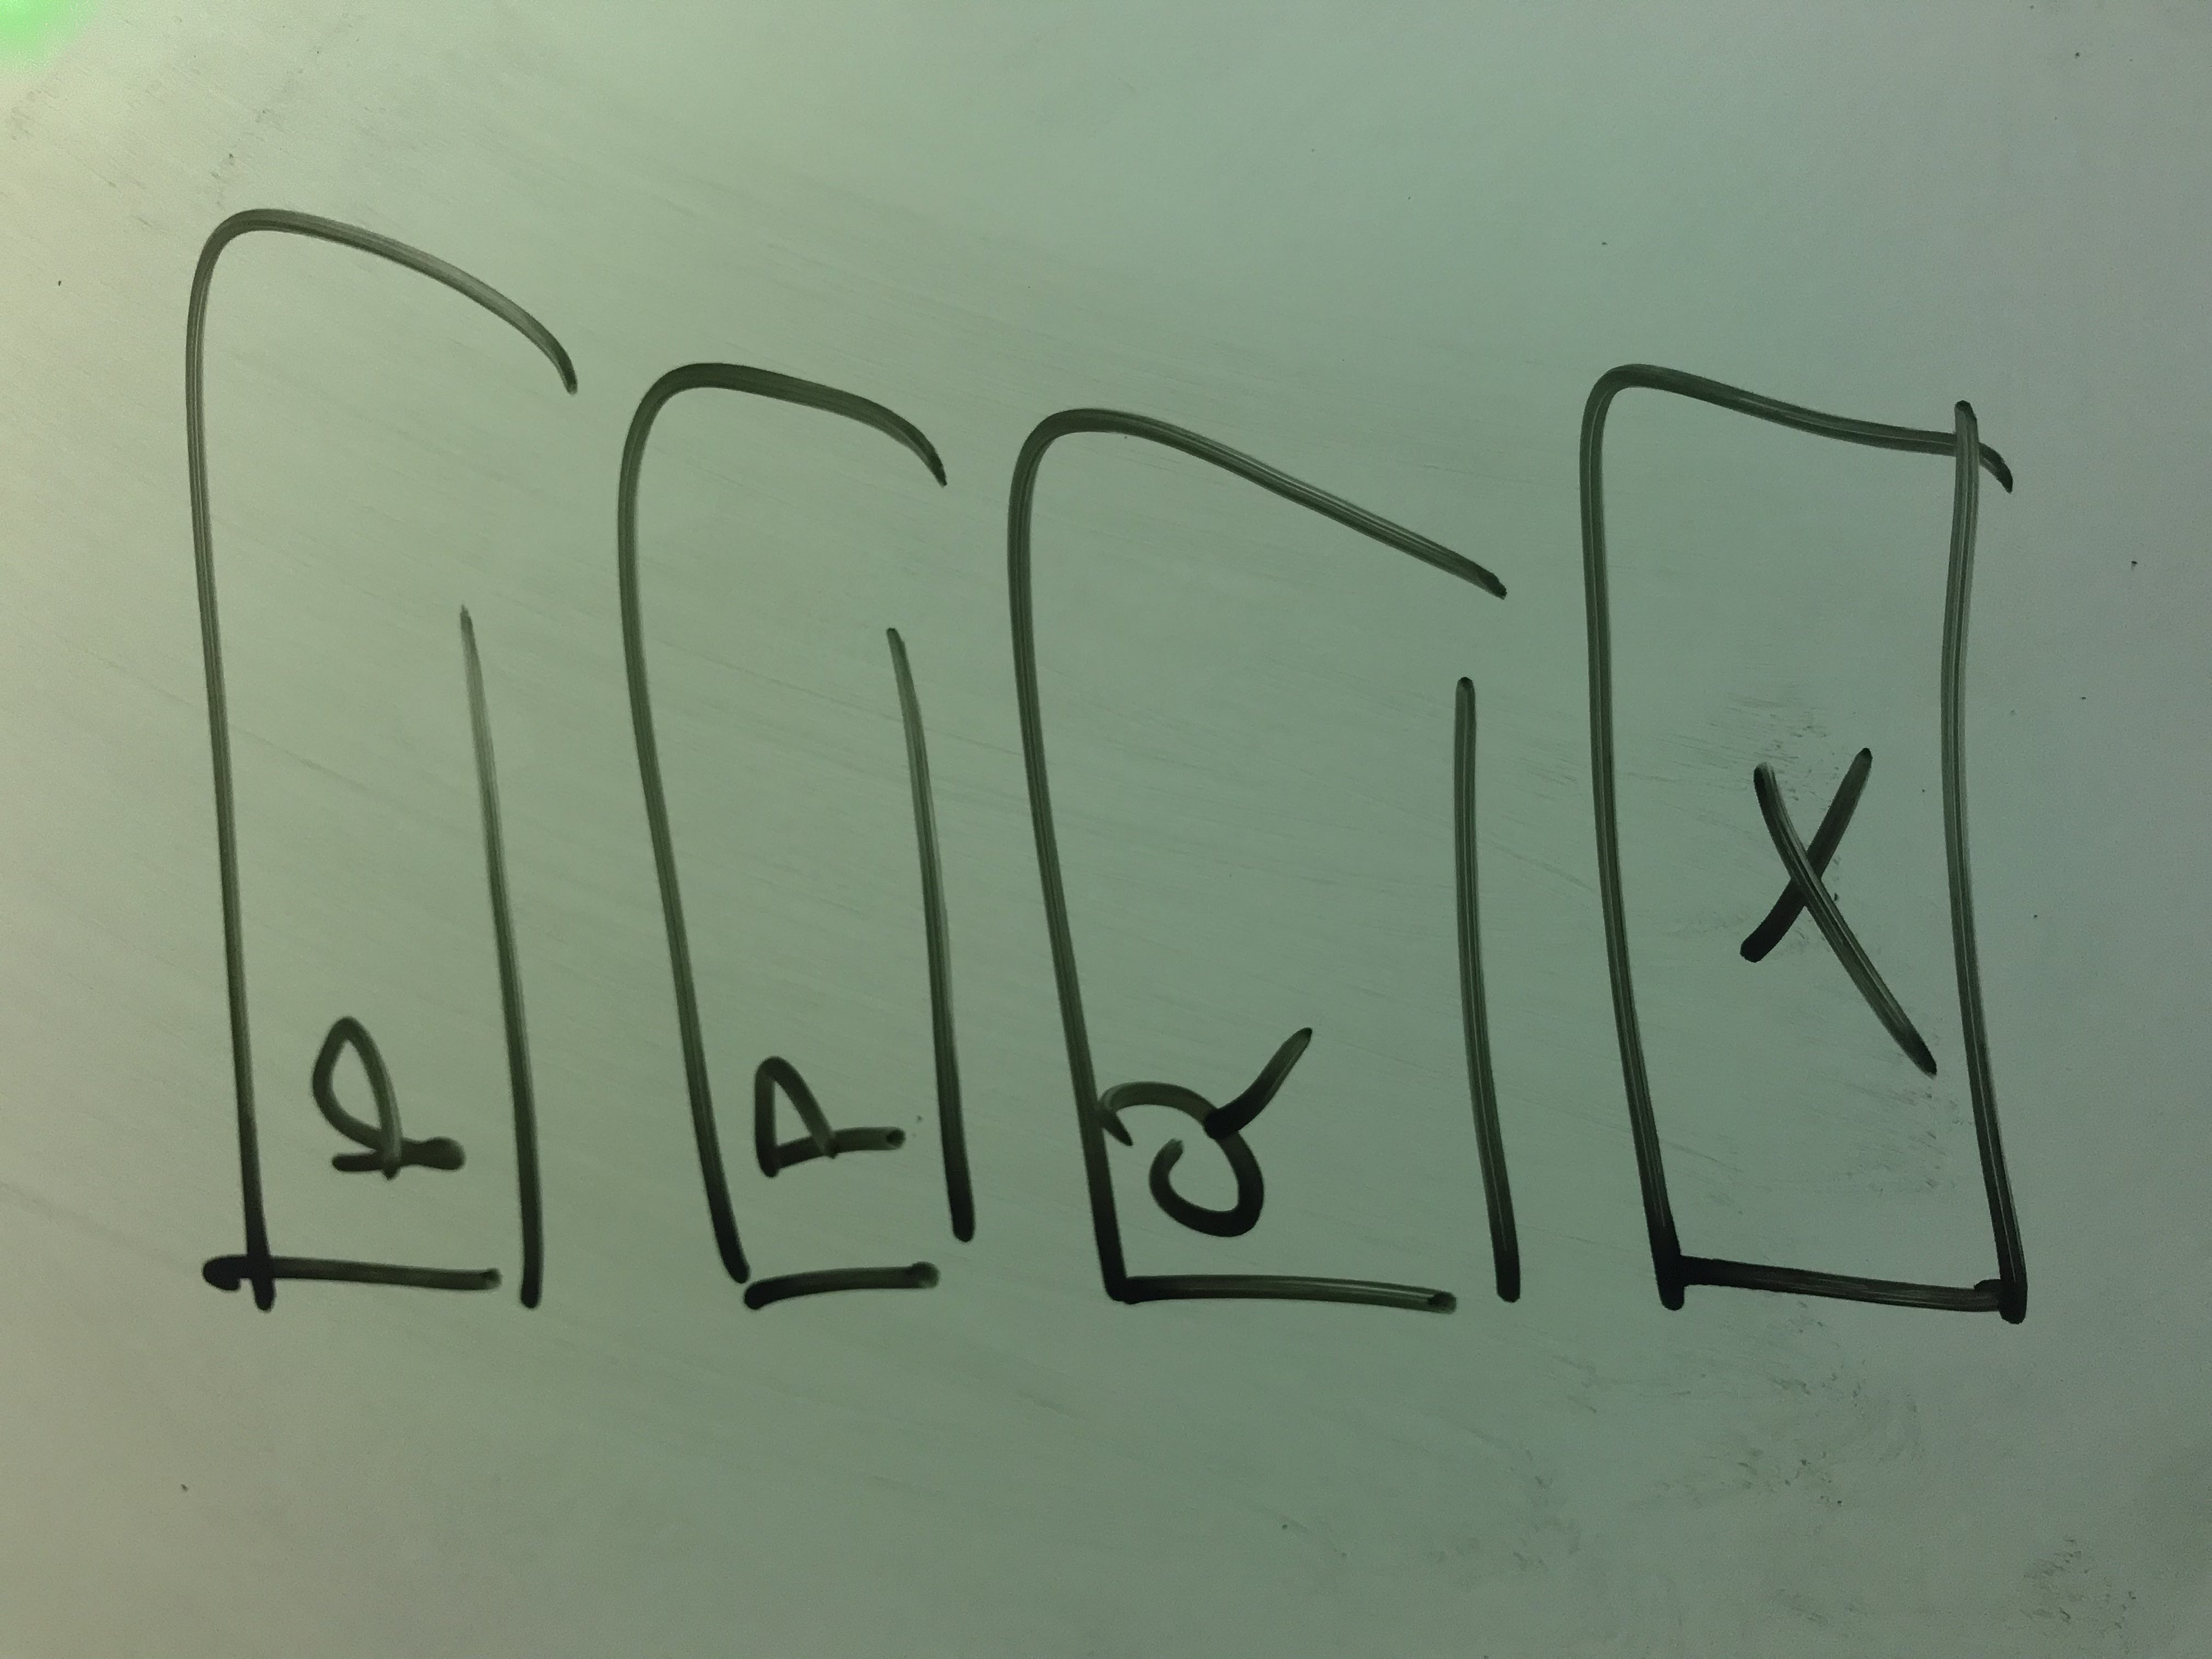 P
P
Q
X